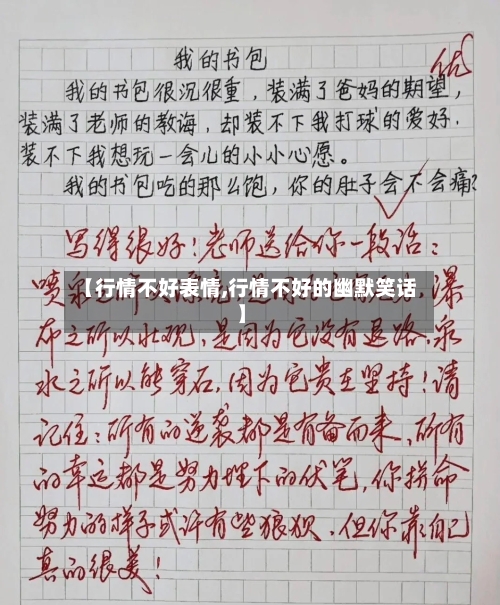 我的书包
优
我的书包很沉很重,装满了爸妈的期望,
装满了老师的教诲,却装不下我打球的爱好.
装不下我想玩一会儿的小小心愿。
我的书包吃的那么饱,你的肚子会不会痛?
写得很好!老师送给你一段话:
喷泉
瀑
【行情不好表情,行情不好的幽默笑话
】
布之所以壮观,是因为它没有退路,泉
水之所以能穿石,因为它贵在坚持!请
记住:所有的逆袭都是有备而来,所有
的幸运都是努力埋下的伏笔,你拼命
努力的样子或许有些狼狈,但你靠自己
真的很美!